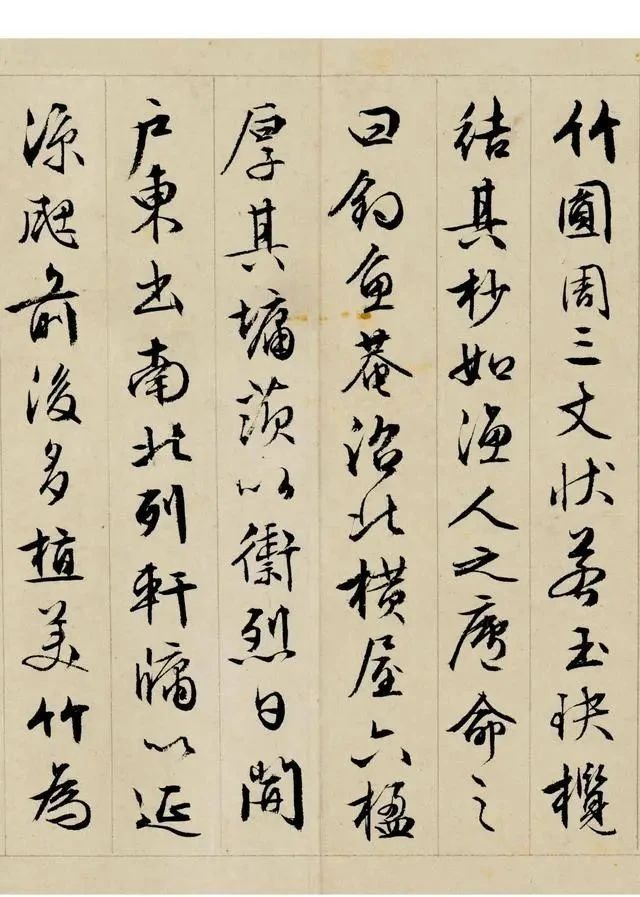 竹圓周三丈状若玉玦攬
結其杪如漁人之廬命之
曰釣魚菴沼北橫屋六楹
厚其墉茨以衛烈日開
户東出南北列軒牖以延
涼颸前後多植美竹為